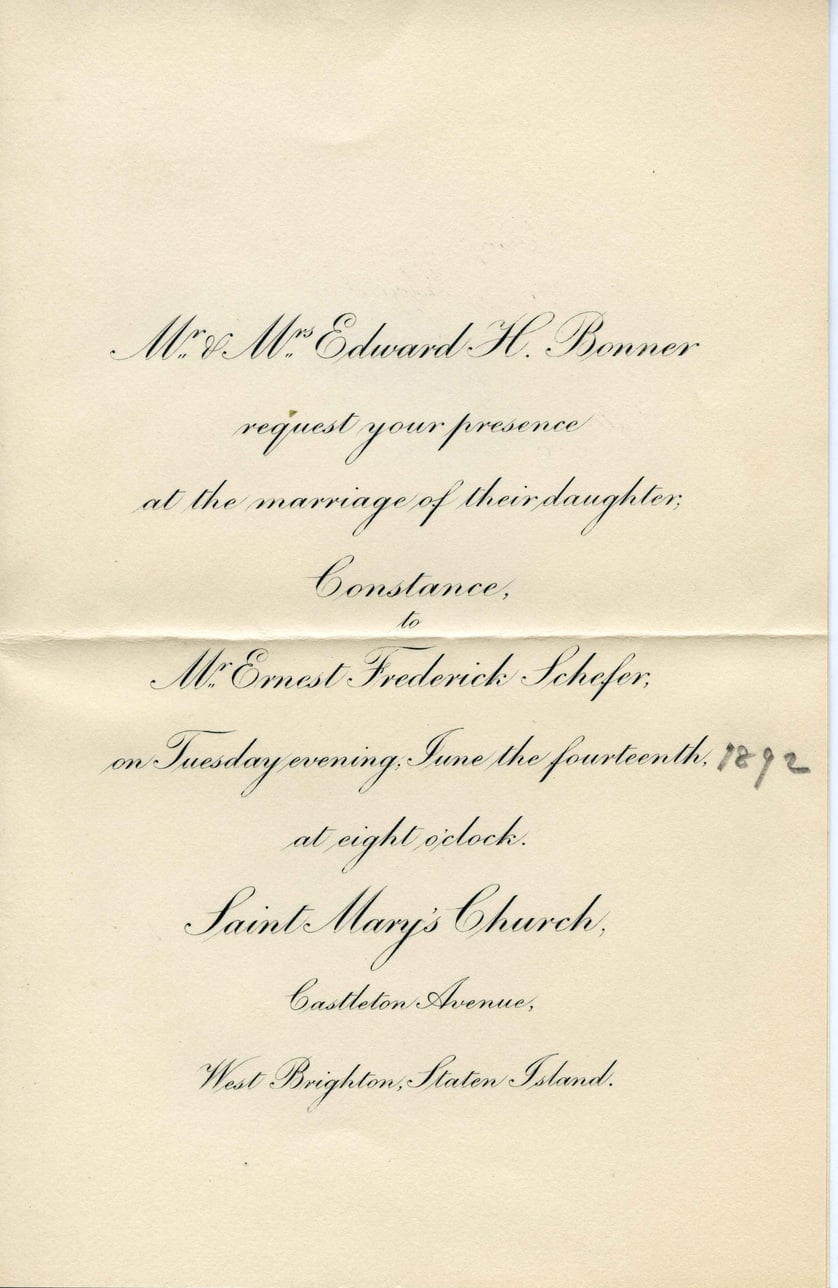 Mr. & Mrs. Edward H. Bonner
request your presence
at the marriage of their daughter,
Constance,
to
Mr. Ernest Frederick Schefer,
on Tuesday evening, June the fourteenth, 1892
at eight o'clock.
Saint Mary's Church,
Castleton Avenue,
West Brighton, Staten Island.